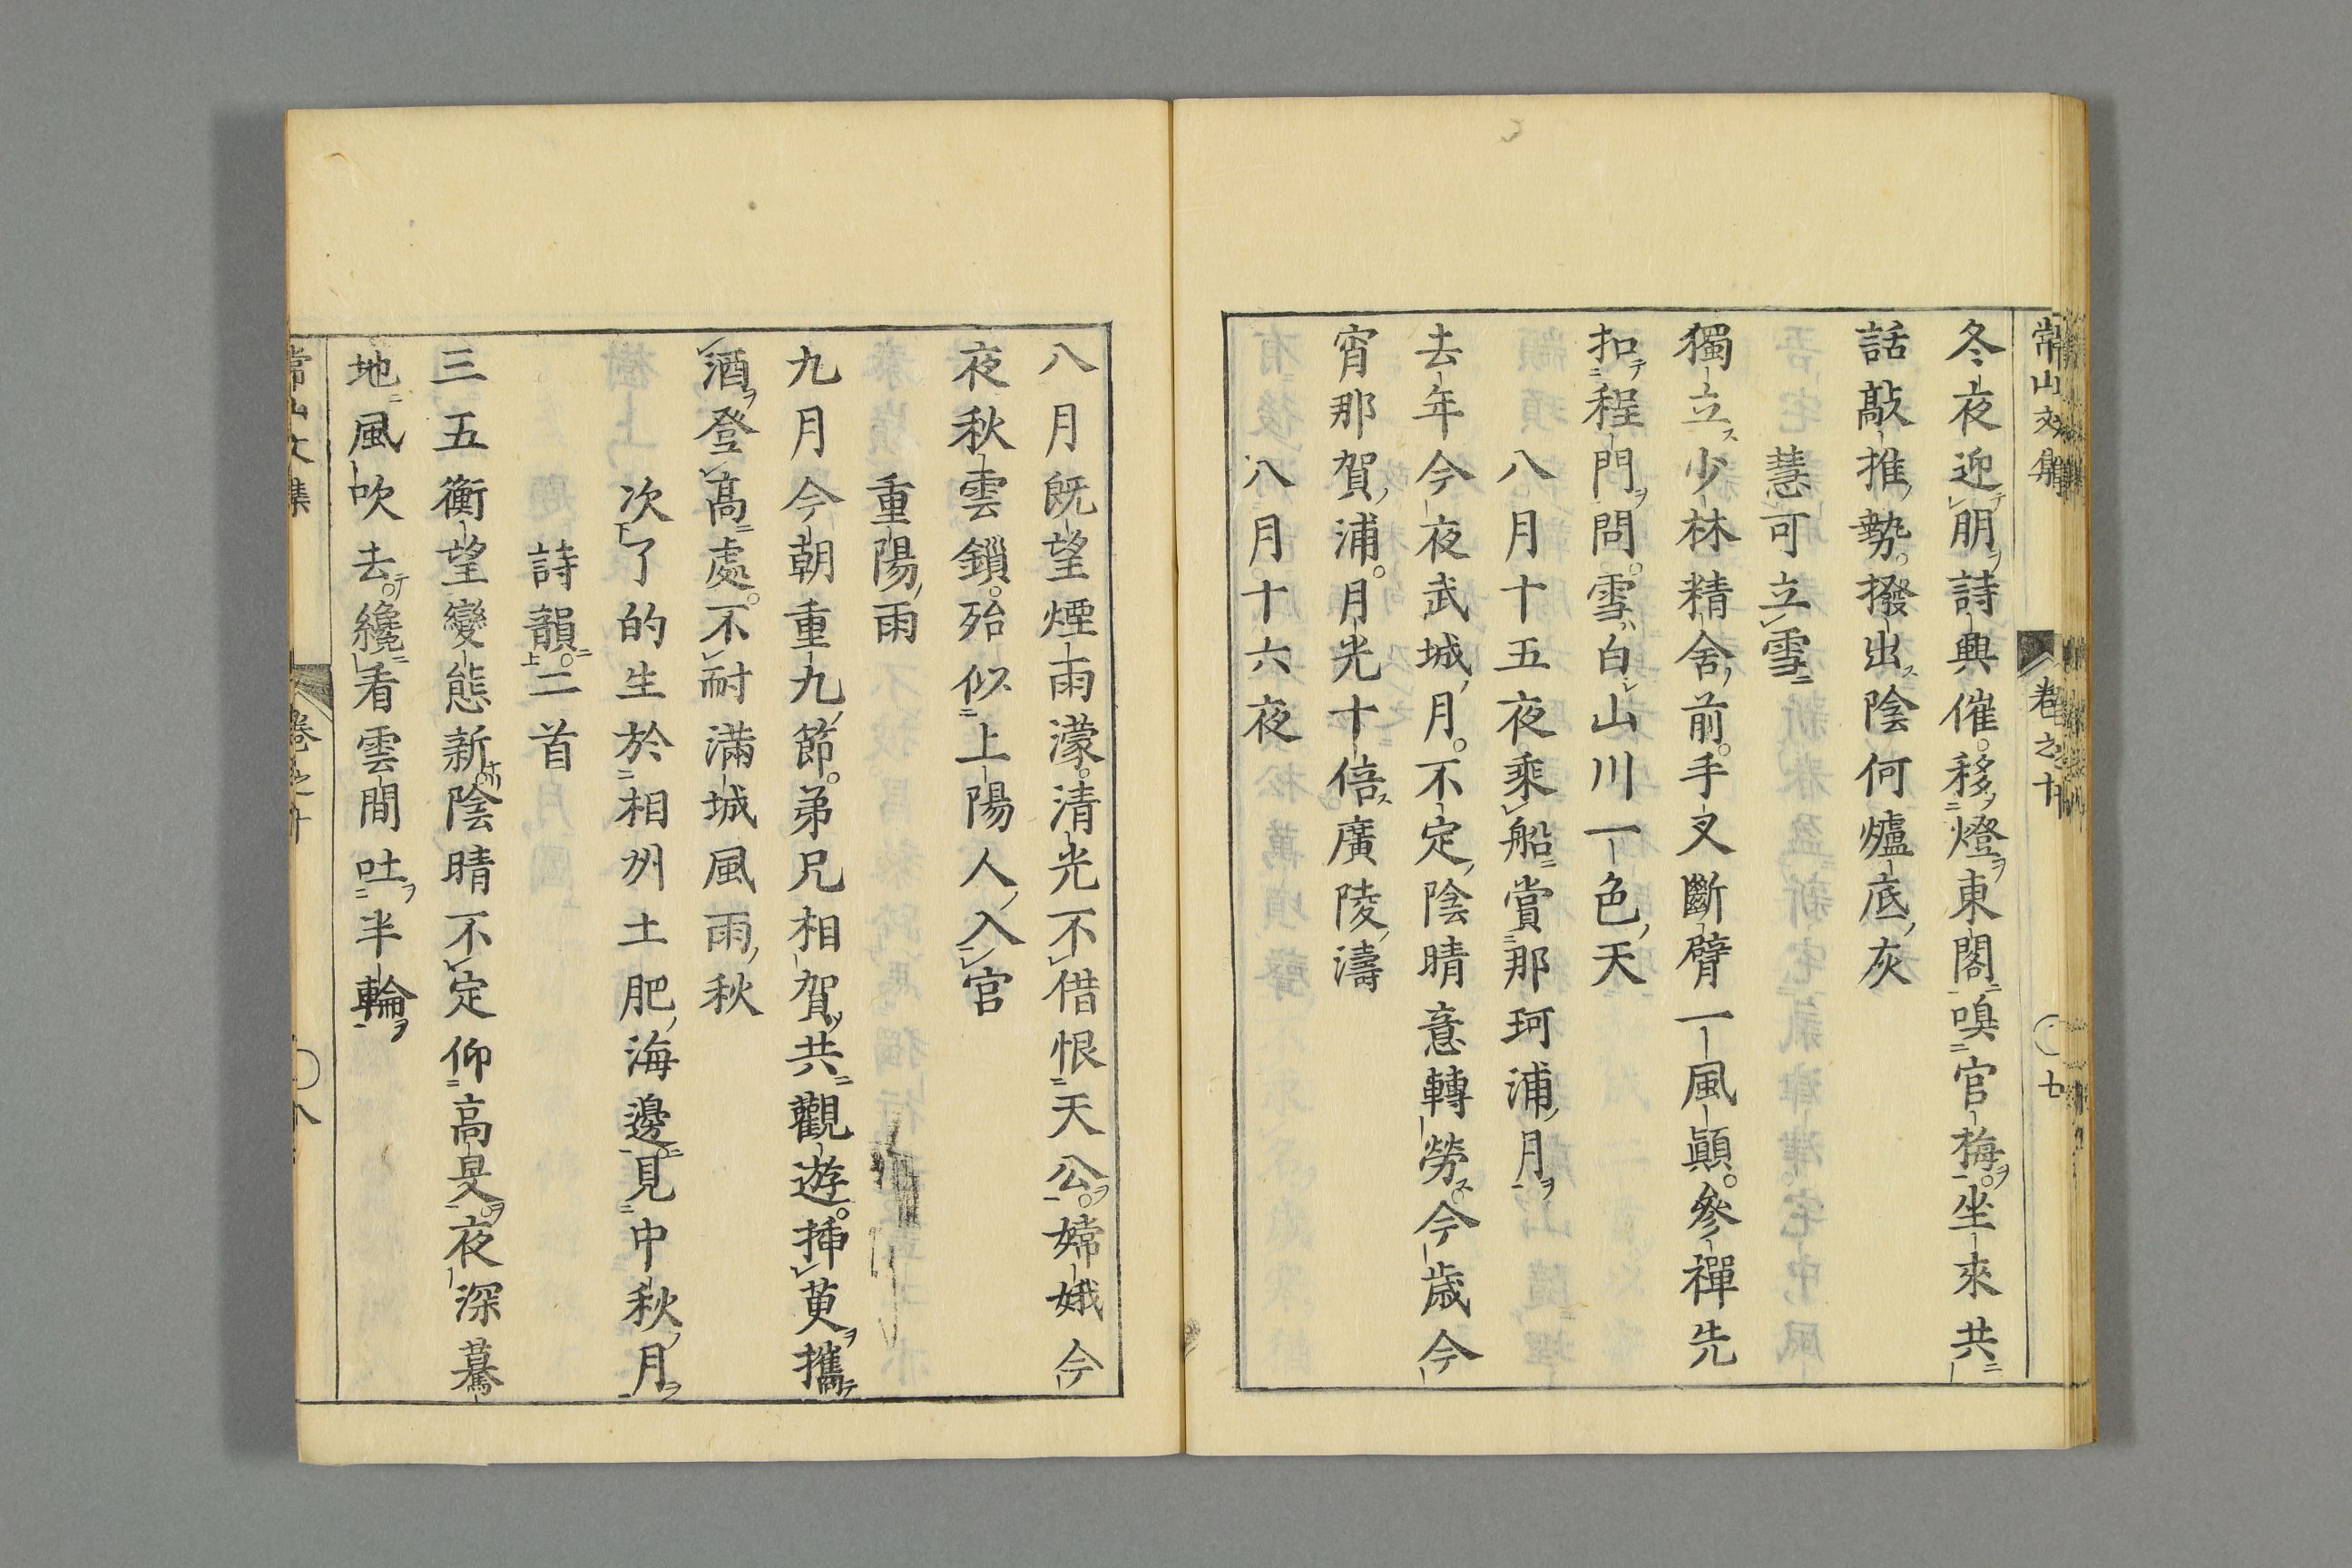 常山文集
卷之十
七
冬夜迎朋詩興催移燈東閣嗅官梅坐來共
話敲推勢撥出陰何爐底灰
慧可立雪
獨立少林精舍前手叉斷臂一風顚參禪先
扣程門問雪白山川一色天
八月十五夜乘船賞那珂浦月
去年今夜武城月不定陰晴意轉勞今歲今
宵那賀浦月光十倍廣陵濤
八月十六夜
八月既望煙雨濛清光不借恨天公嫦娥今
夜秋雲鎖殆似上陽人入官
重陽雨
九月今朝重九節弟兄相賀共觀遊挿茰攜
酒登高處不耐滿城風雨秋
次了的生於相州土肥海邊見中秋月
詩韻二首
三五衡望變態新陰晴不定仰高旻夜深驀
地風吹去纔看雲間吐半輪
常山文集
卷之十
八